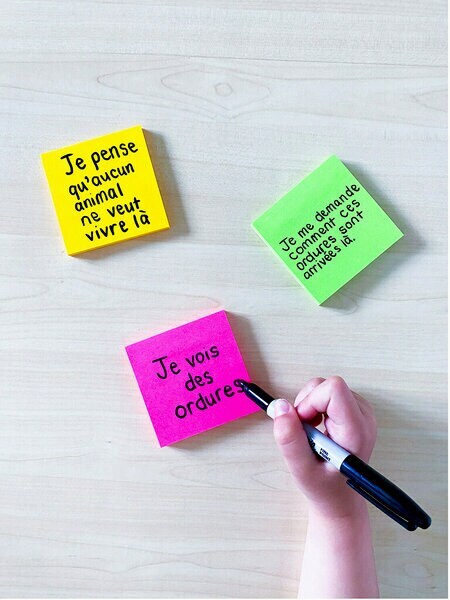 Je pense
qu'aucun
animal
ne veut
vivre là
Je me demande
comment ces
ordures sont
arrivées là.
Je vois
des
ordures